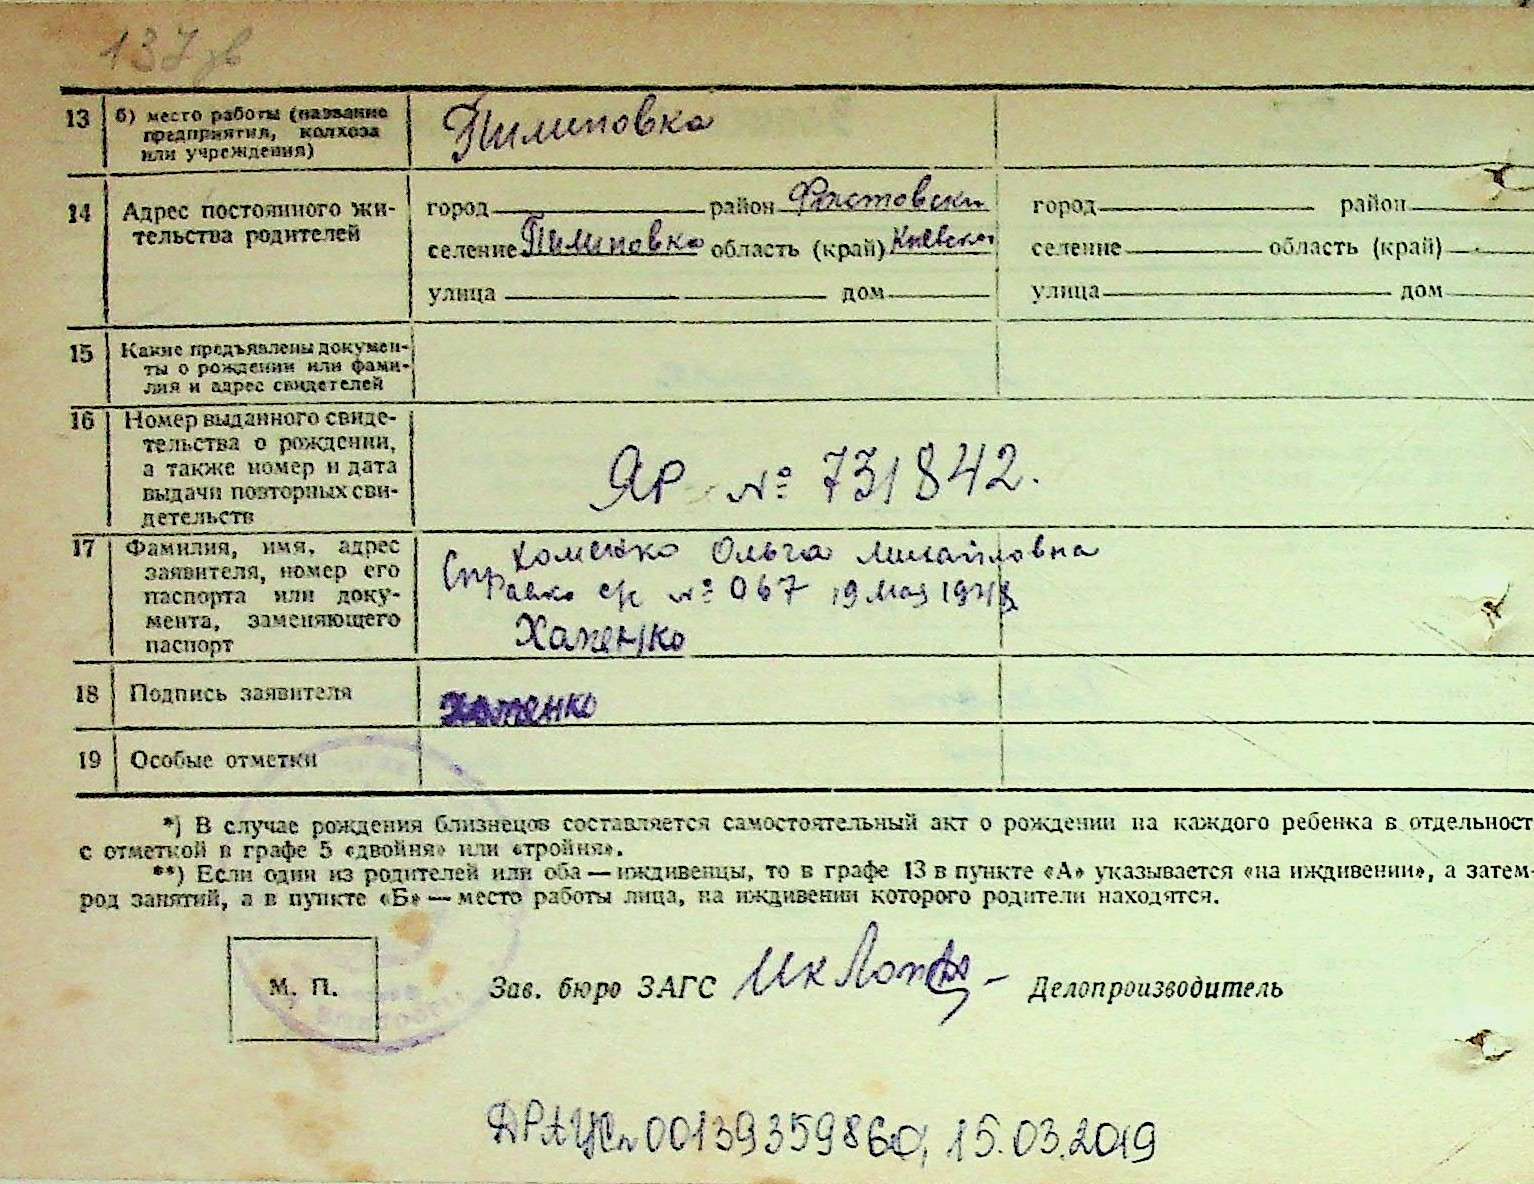 137 зв
13 б) место работы (название Пилиповка
предприятия, колхоза
или учреждения)
14 Адрес постоянного жи- город район Фастовски город район
тельства родителей селение Пилиповка область (край) Киевская селение область (край)
улица дом улица дом
15 Какие предъявлены докумен-
ты о рождении или фами-
лия и адрес свидетелей
16 Номер выданного свиде-
тельства о рождении,
а также номер и дата ЯР № 731842.
выдачи повторных сви-
детельств
17 Фамилия, имя, адрес Хоменко Ольга Михайловна
заявителя, номер его Справка с/с № 067 19 мая 1948
паспорта или доку-
мента, заменяющего Хоменко
паспорт
18 Подпись заявителя Хоменко
19 Особые отметки
*) В случае рождения близнецов составляется самостоятельный акт о рождении на каждого ребенка в отдельност
с отметкой в графе 5 «двойня» или «тройня».
**) Если один из родителей или оба — иждивенцы, то в графе 13 в пункте «А» указывается «на иждивении», а затем—
род занятий, а в пункте «Б» — место работы лица, на иждивении которого родители находятся.
М. П. Зав. бюро ЗАГС Делопроизводитель
ДРАЦСл 00139359860, 15.03.2019